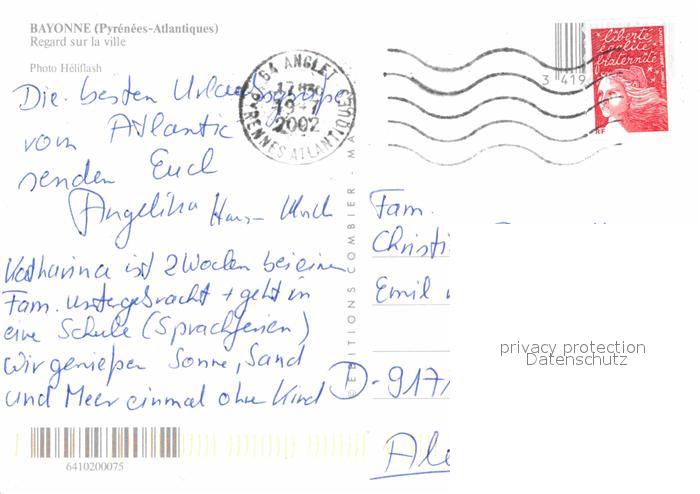 BAYONNE (Pyrénées-Atlantiques)
Regard sur la ville
Photo Héliflash
Die besten Urlaubsgrüße
vom Atlantic
senden Euch
Angelina Hans-Ulrich
Katharina ist 2 Wochen bei einer
Fam. untergebracht + geht in
eine Schule (Sprachferien)
wir genießen Sonne, Sand
und Meer einmal ohne Kind
6410200075
64 ANGLET
17H30
19-7
2002
PYRENNES ATLANTIQUE
EDITIONS COMBIER - MA
3 419
liberté
égalité
fraternité
RF
Fam.
Christi
Emil
D-917
Al
privacy protection
Datenschutz